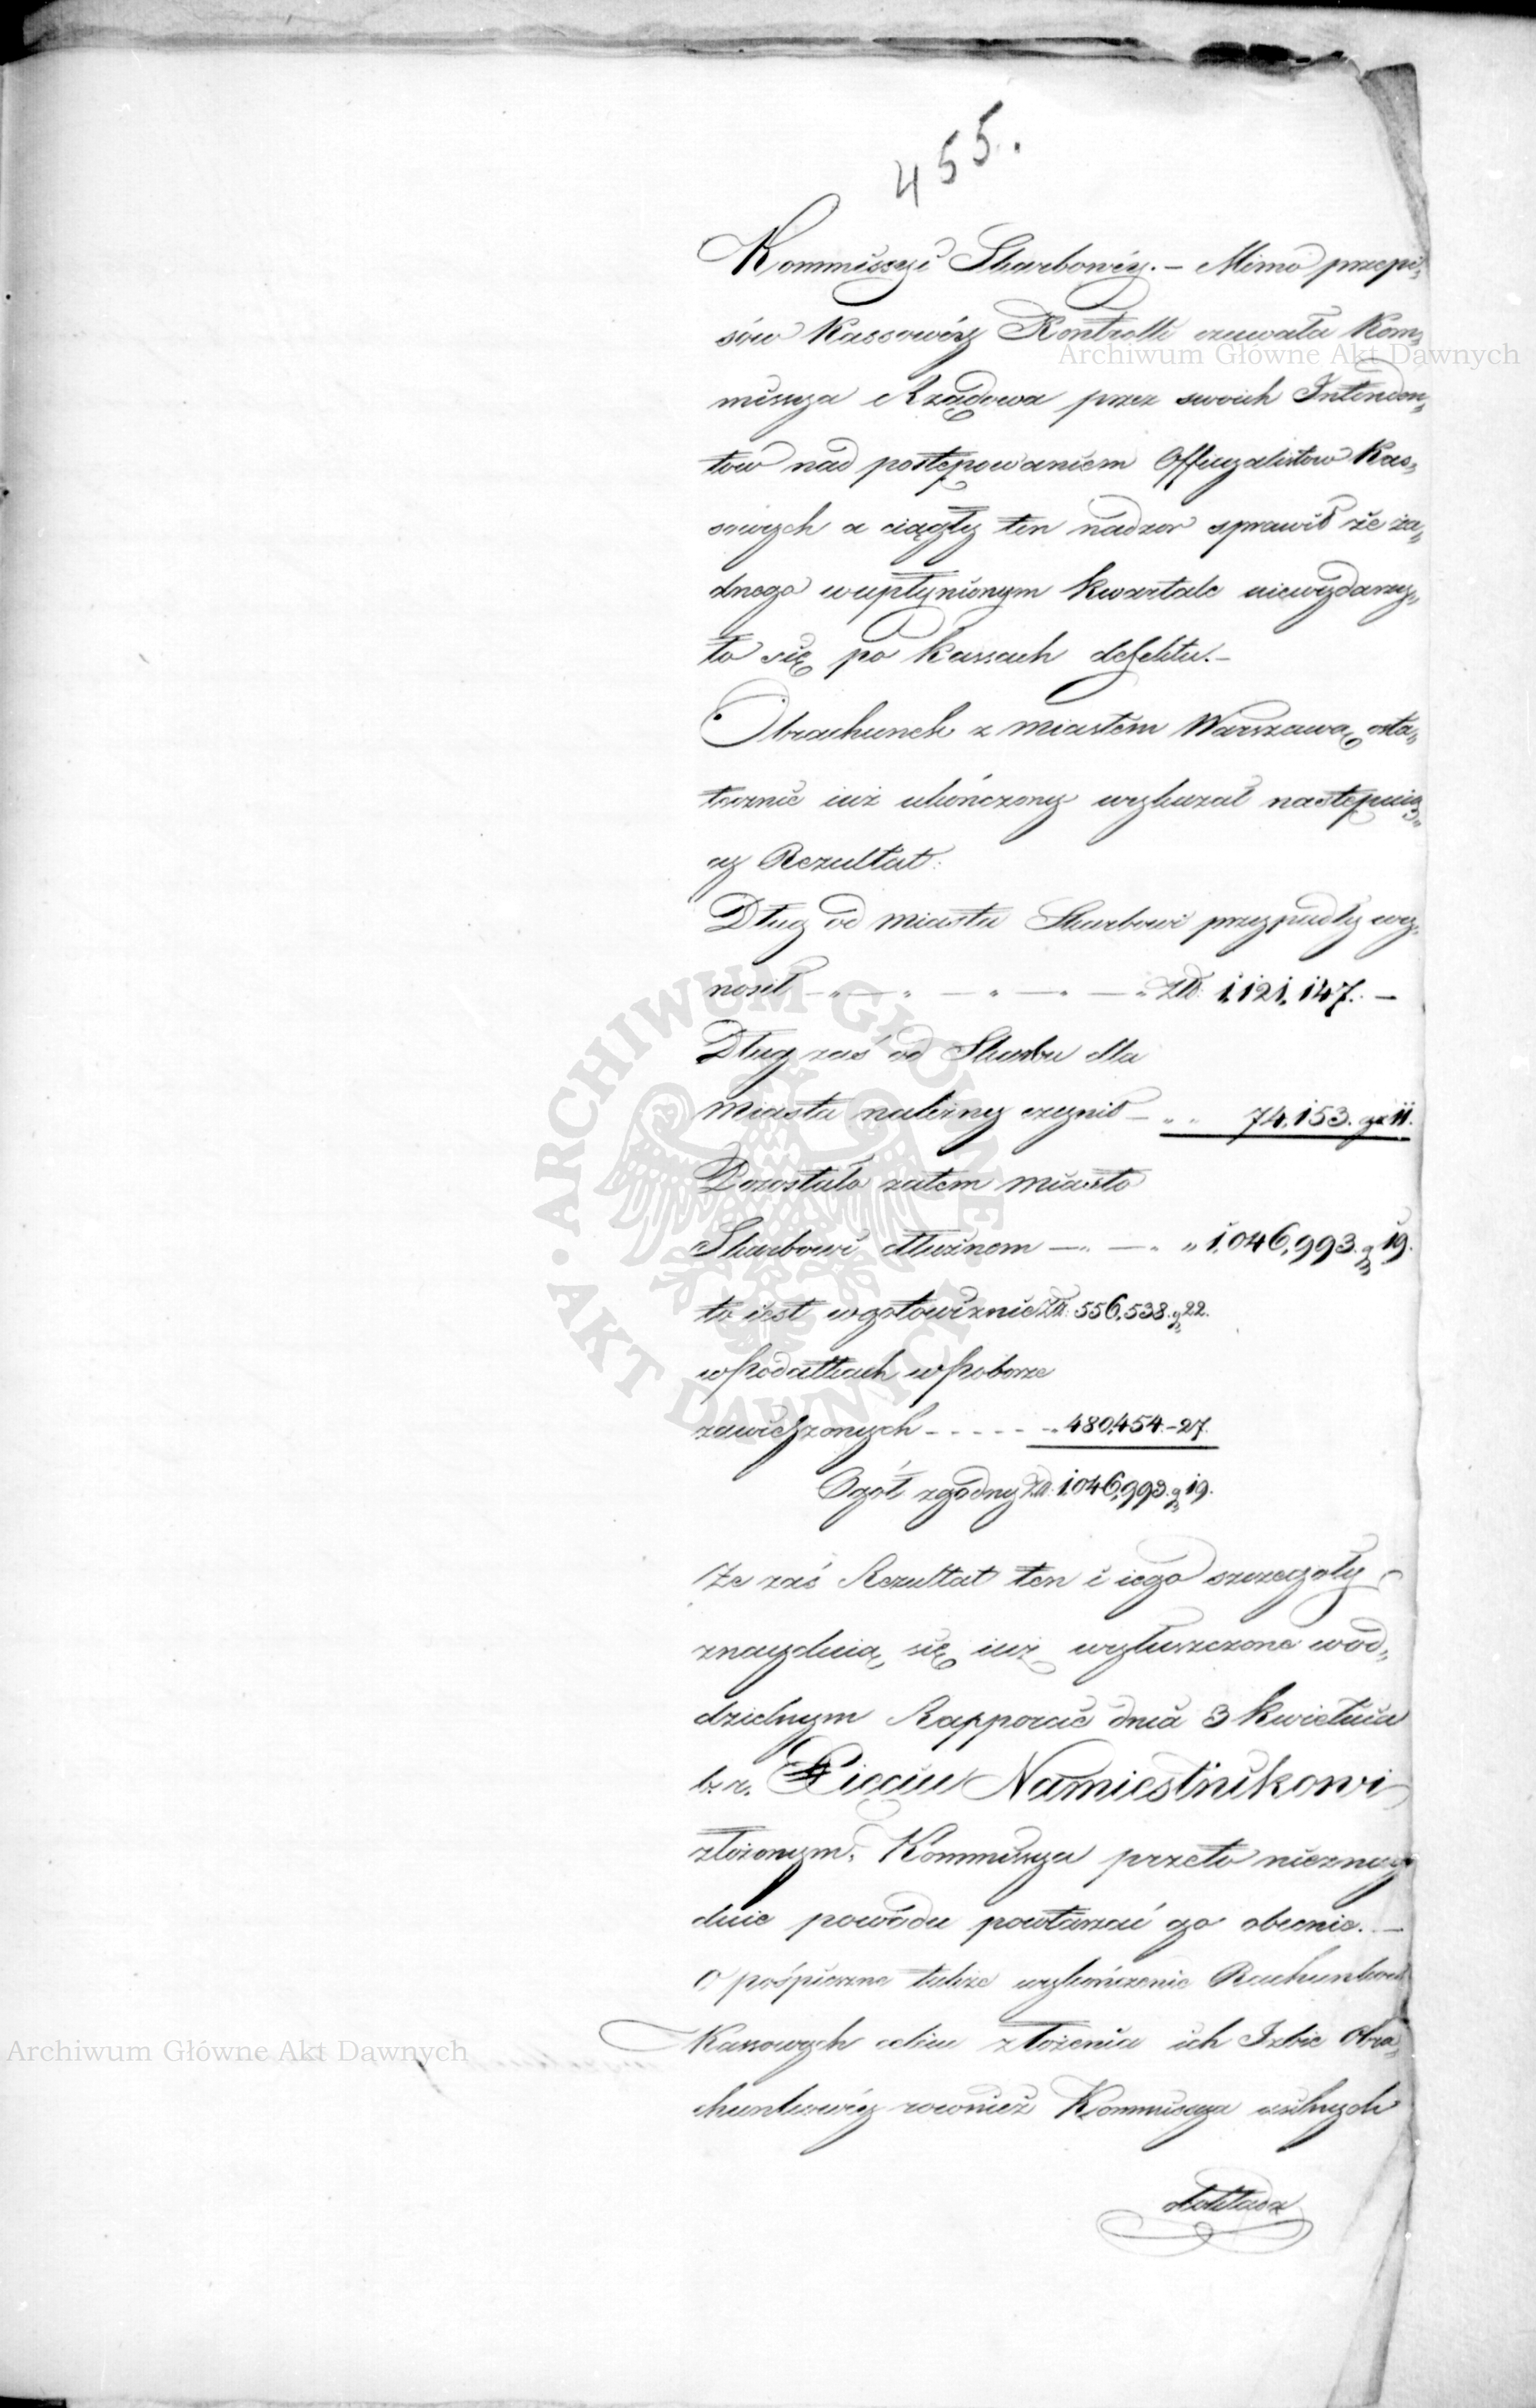 455.
Kommissyi Skarbowéy. – Mimo przepi„
sów Kassowéy Kontrolli czuwała Kom„
Archiwum Główne Akt Dawnych
missya Rządowa przez swoich Intenden„
tow nad postępowaniem Officyalistow Kas„
sowych a ciągły ten nadzor sprawił że ża„
dnego wupłynionym kwartale niewydarzy„
ło się po kassach defektu. –
Obrachunek z miastem Warszawą osta„
tecznie iuż ukończony wykazał następuią„
cy Rezultat:
Dług od miasta Skarbowi przypadły wy„
nosił – „ – „ – „ – „ – „ Złł: 1,121,147. –
Dług zaś od Skarbu dla
miasta należny czynił – „ „ 74,153. gr 11.
Pozostało zatem miasto
Skarbowi dłużnem – „ – „ „ 1,046,993. g 19.
to iest wgotowiznie Złł: 556,538. g 22.
w Podatkach w Poborze
zawieszonych - - - - - „ 480,454. – 27.
Ogół zgodny Złł: 1,046,993. g 19.
Że zaś Rezultat ten i iego szczegoły
znayduią się iuż wyłuszczone wod„
dzielnym Rapporcie dnia 3 Kwietnia
b. r. Xięciu Namiestnikowi
złożonym, Kommissya przeto nieznay
duie powodu powtarzać go obecnie. –
O pośpieszne także wykończenie Rachunkow
Kassowych celem złożenia ich Izbie Obra„
Archiwum Główne Akt Dawnych
chunkowéy rownież Kommissya usilnych
dokłada
ARCHIWUM GŁÓWNE AKT DAWNYCH